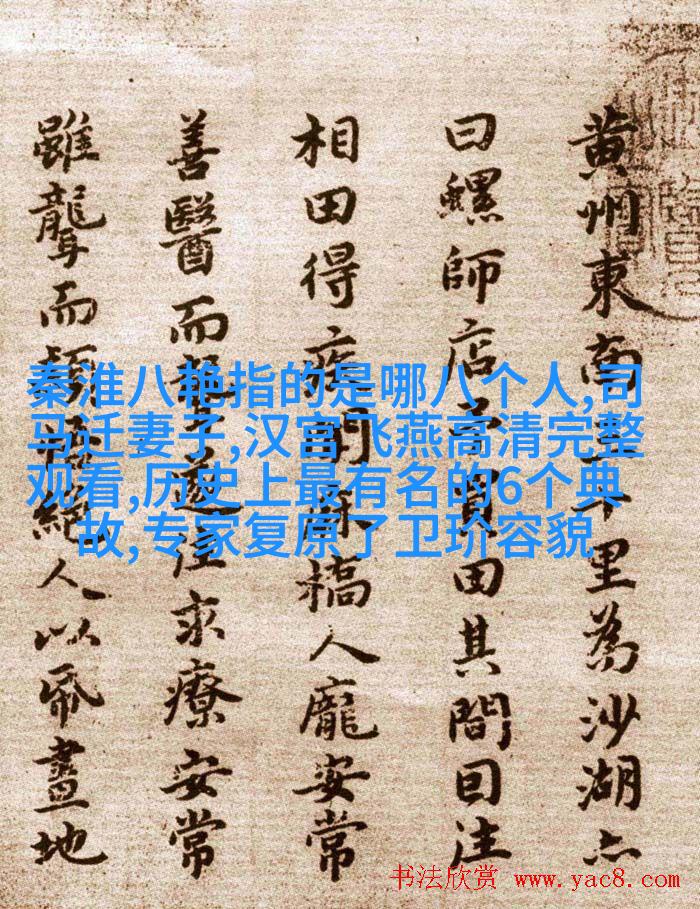 黄州東南十里為沙湖亦
曰螺師店予買田其間因往
相田得疾聞麻橋人龐安常
善醫而聾遂往求療安常
雖聾而穎悟絕人以紙畫地
秦淮八艳指的是哪八个人,司
马迁妻子,汉宫飞燕高清完整
观看,历史上最有名的6个典
故,专家复原了卫玠容貌
书法欣赏 www.yac8.com